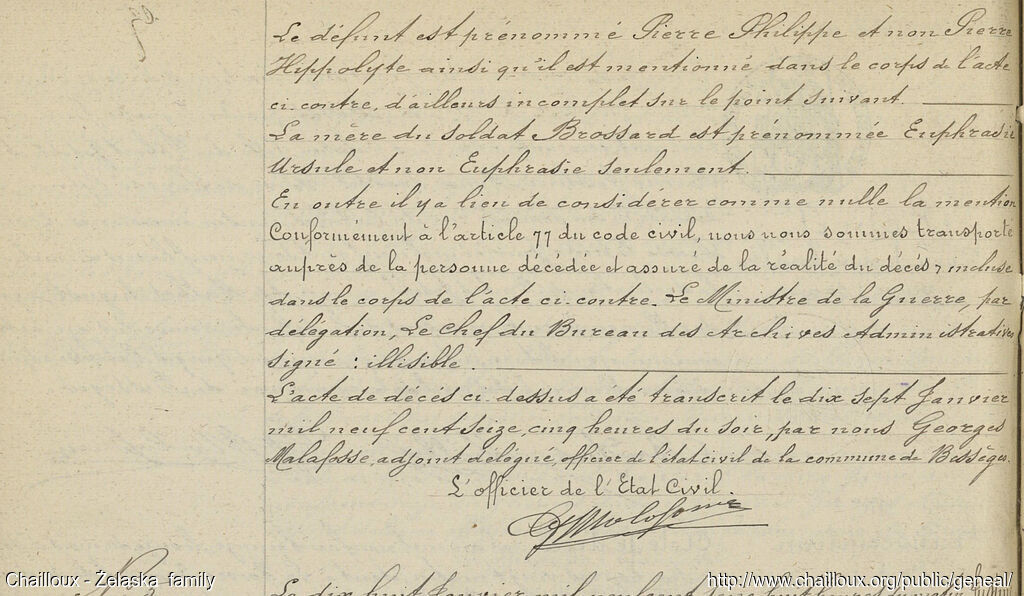 Le défunt est prénommé Pierre Philippe et non Pierre
Hippolyte ainsi qu'il est mentionné dans le corps de l'acte
ci-contre, d'ailleurs incomplet sur le point suivant.
La mère du soldat Brossard est prénommée Euphrasie
Ursule et non Euphrasie seulement.
En outre il y a lieu de considérer comme nulle la mention
Conformément à l'article 77 du code civil, nous nous sommes transporté
auprès de la personne décédée et assuré de la réalité du décés, incluse
dans le corps de l'acte ci-contre. Le Ministre de la Guerre, par
délégation, Le Chef du Bureau des Archives Administratives
signé : illisible.
L'acte de décés ci-dessus a été transcrit le dix sept Janvier
mil neuf cent seize, cinq heures du soir, par nous Georges
Malafosse, adjoint délégué, officier de l'état civil de la commune de Bessèges.
L'officier de l'Etat Civil.
Le dix huit Janvier mil neuf cent seize
Chailloux - Żelaska family
http://www.chailloux.org/public/geneal/